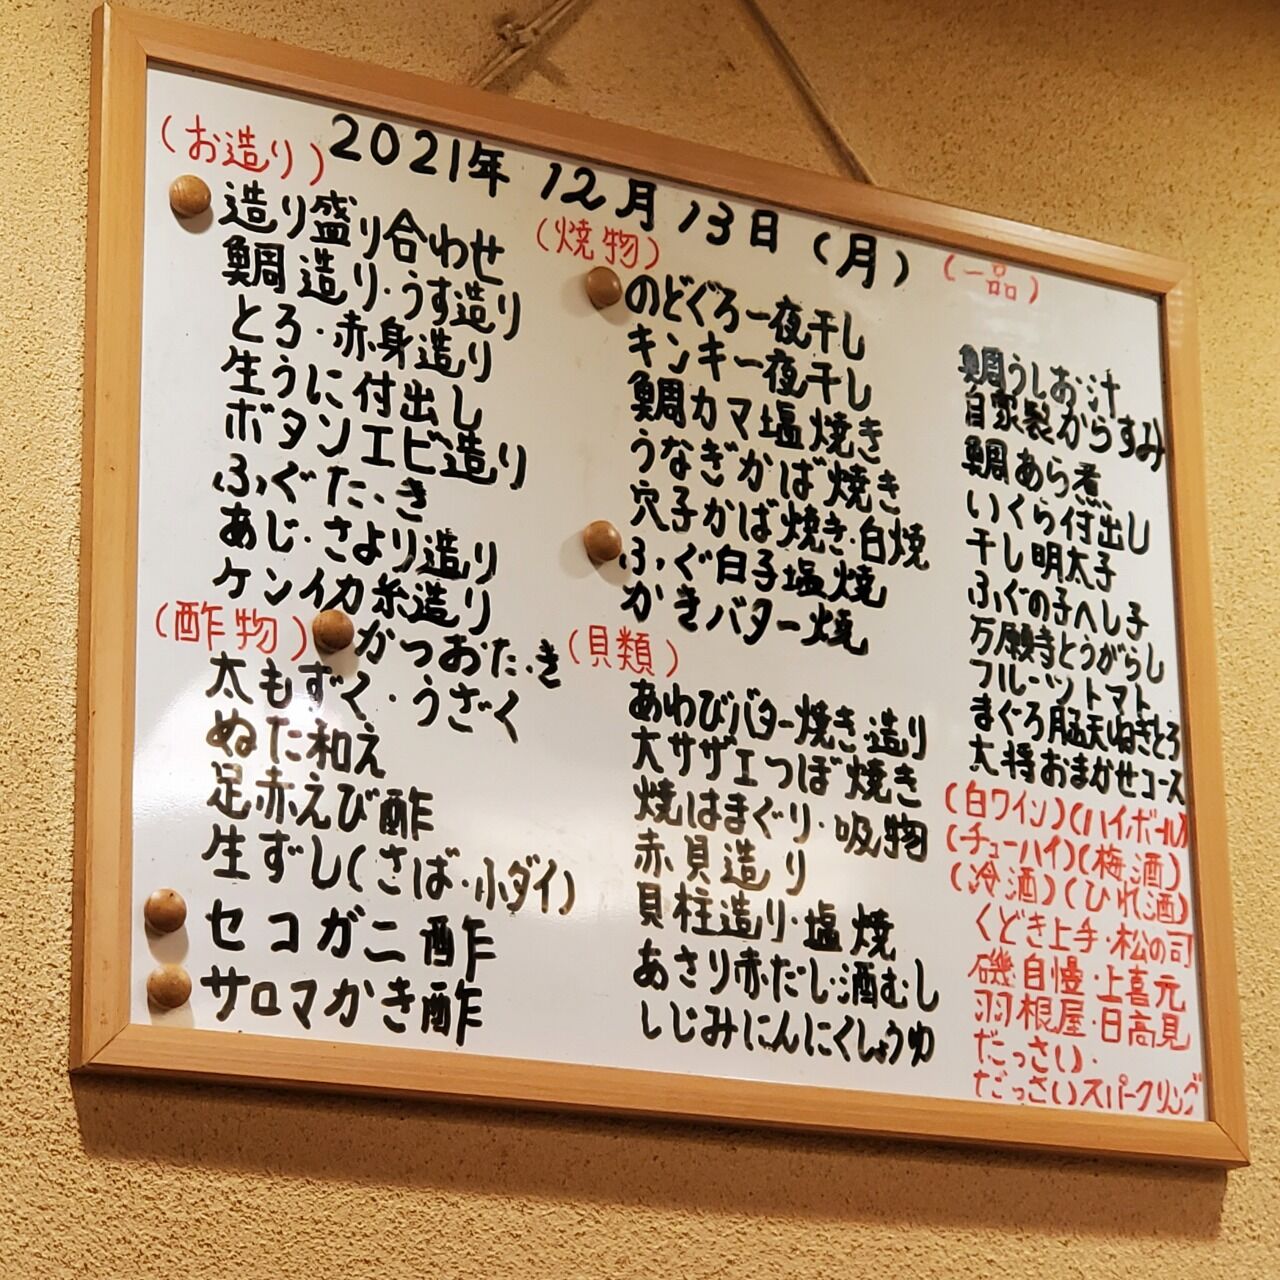 2021年 12月 13日（月）
（お造り）
造り盛り合わせ
鯛造り・うす造り
とろ・赤身造り
生うに付出し
ボタンエビ造り
ふぐたゝき
あじ・さより造り
ケンイカ糸造り
かつおたゝき
（酢物）
太もずく・うざく
ぬた和え
足赤えび酢
生ずし（さば・小ダイ）
セコガニ酢
サロマかき酢
（焼物）
のどぐろ一夜干し
キンキ一夜干し
鯛カマ塩焼き
うなぎかば焼き
穴子かば焼き・白焼
ふぐ白子塩焼
かきバター焼
（貝類）
あわびバター焼き・造り
大サザエつぼ焼き
焼はまぐり・吸物
赤貝造り
貝柱造り・塩焼
あさり赤だし・酒むし
しじみにんにくしょうゆ
（一品）
鯛うしお汁
自家製からすみ
鯛あら煮
いくら付出し
干し明太子
ふぐの子へし子
万願寺とうがらし
フルーツトマト
まぐろ脳天ねぎとろ
大将おまかせコース
（白ワイン）（ハイボール）
（チューハイ）（梅酒）
（冷酒）（ひれ酒）
くどき上手・松の司
磯自慢・上喜元
羽根屋・日高見
だっさい・
だっさいスパークリング